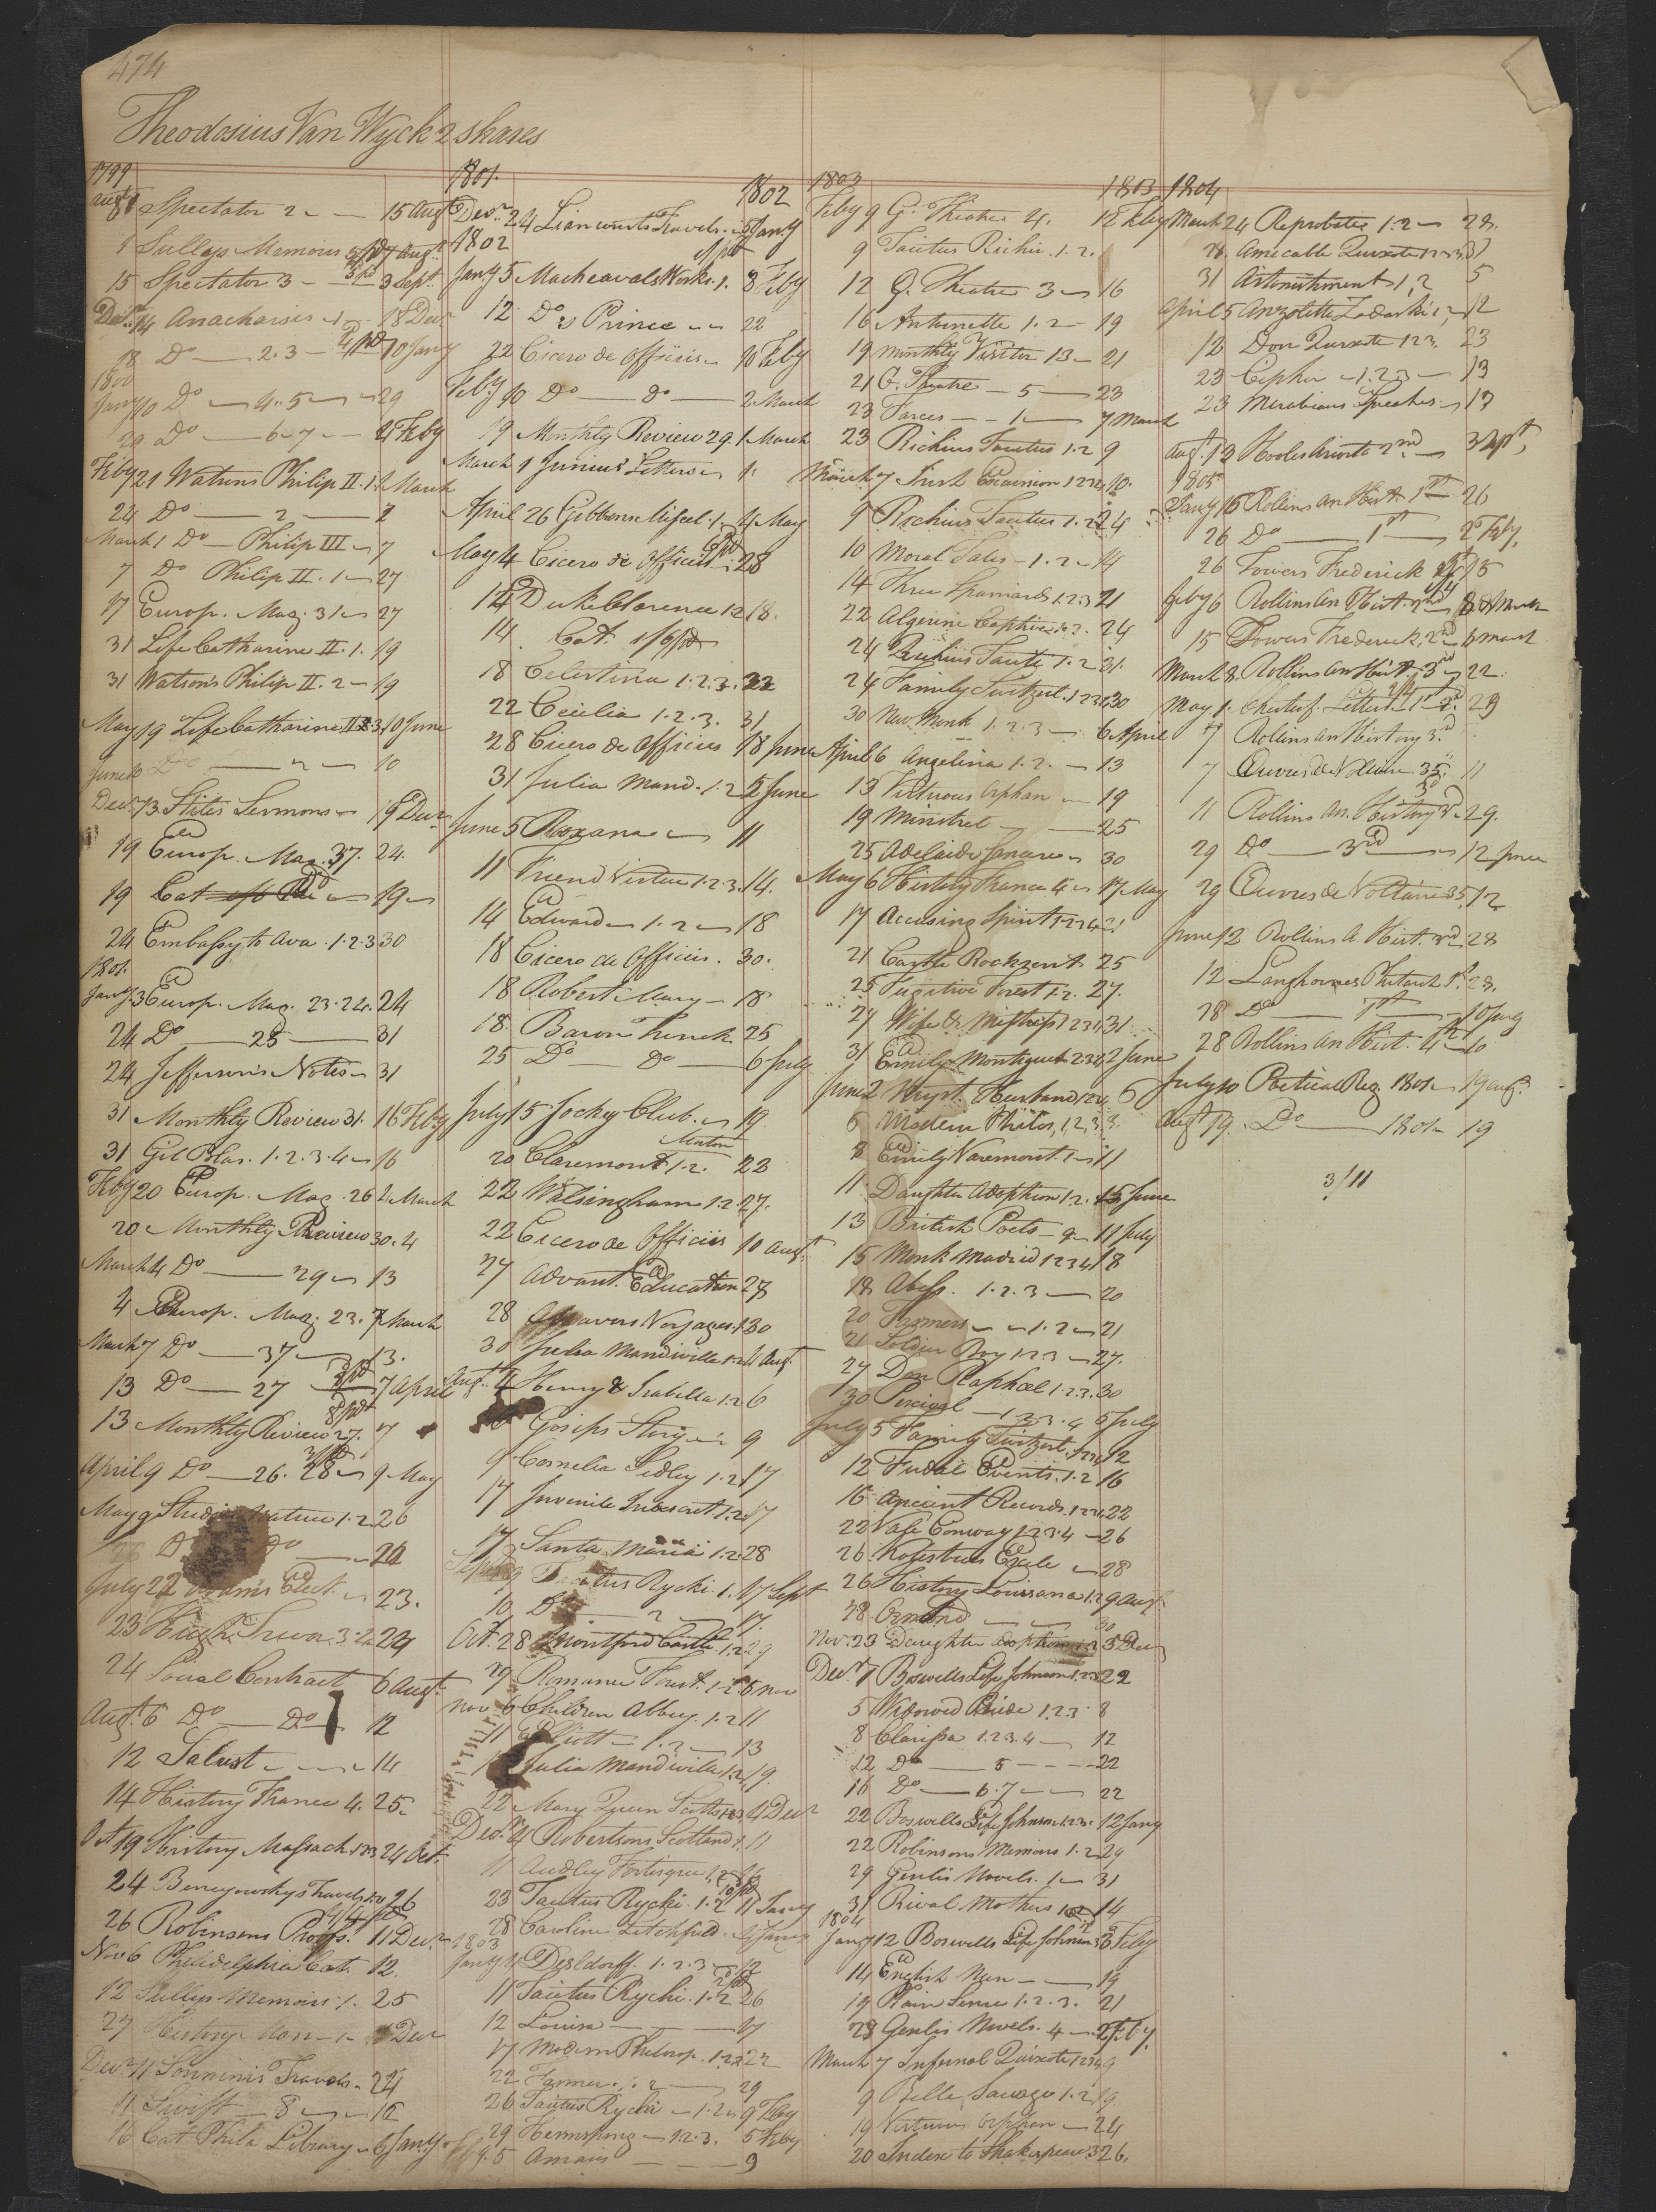 474
Theodosius Van Wyck 2 shares
1799
Augt 1 Spectator 2 15 Augt
1 Sullys Memoirs 7 Augt
15 Spectator 3 3 Sept.
Decr 14 Anacharsis 1 18 Decr
18 Do 2.3 10 Jany
1800
Jany 10 Do 4.5 29
29 Do 6.7 4 Feby
Feby 21 Watsons Philip II. 1. March
24 Do 2
March 1 Do Philip III 7
7 Do Philip II. 1 27
17 Europ. Mag. 31 27
31 Life Catharine II. 1. 19
31 Watson's Philip II. 2 19
May 19 Life Catharine II 10 June
June 10 Do 10
Decr 13 Stiles Sermons 19 Decr
19 Europ. Mag. 37. 24.
19 Cat 19
24 Embassy to Ava. 1.2.3 30
1801.
Jany 3 Europ. Mag. 23.24. 24
24 Do 25 31
24 Jefferson's Notes 31
31 Monthly Review 31. 16 Feby
31 Gil Blas. 1.2.3.4 16
Feby 20 Europ. Mag. 26 2 March
20 Monthly Review 30. 4
March 4 Do 29 13
4 Europ. Mag. 23. 7 March
March 7 Do 37 13.
13 Do 27 7 April
13 Monthly Review 27. 7
April 9 Do 26. 28 9 May
May 9 Nature 1.2 26
26 Do Do
July 22 Elect. 23.
23 24
24 Social Contract 6 Augt.
Augt. 6 Do Do 12
12 Salust 14
14 History France 4. 25
Oct 19 History Massach. 24 Oct.
24 Benyowskys Travels 26
26 Robinsons Proofs. 11 Decr
Nov 6 Philadelphia Cat. 12.
12 Sullys Memoirs 1. 25
27 History Decr
Decr 11 Sonninis Travels. 24
11 Swift 8 16
16 Cat Phila Library 6 Jany
1801. 1802
Decr 24 Liancourts Travels. 5 Jany
1802
Jany 5 Macheavals Works. 1. 8 Feby
12 Do Prince 22
22 Cicero de Officiis 10 Feby
Feby 10 Do Do 2 March
19 Monthly Review 29. 1 March
March 1 Junius' Letters
April 26 Gibbons Miscel. 1. 4 May
May 4 Cicero de Officiis 28
12 Duke Clarence 1.2 18.
14 Cat.
18 Celestina 1.2.3. 22
22 Cecilia 1.2.3. 31
28 Cicero de Officiis 18 June
31 Julia Mand. 1.2 5 June
June 5 Roxana 11
11 Friend Virtue 1.2.3. 14.
14 Edward 1.2 18
18 Cicero de Officiis. 30.
18 Robert & Mary 18
18. Baron Trenck. 25
25 Do Do 6 July
July 15 Jocky Club. 19
20 Claremont 1.2. 22
22 Walsingham 1.2 27.
22 Cicero de Officiis 10 Augt.
27 Advant. Education 27
28 Voyages. 1 30
30 Julia Mandiville 1.2 4 Augt.
Augt. 4 Henry & Isabella 1.2 6
Gosips Story 9
9 Cornelia Sedley 1.2 17
17 Juvenile Indiscret 1.2 17
17 Santa Maria 1.2 28
Rycki. 1. 17 Sept
10 Do 2 17.
Oct. 28 Montford Castle 1.2 29
29 Romance Forest. 1.2 6 Nov
Nov. 6 Children Abbey. 1.2 11
11 Elliott 1.2 13
Julia Mandiville 1.2 19.
22 Mary Queen Scotts 1.2.3 4 Decr
Decr. 4 Robertsons Scotland 1. 11
11 Audley Fortisque 1.2
23 Tacitus Rycki. 1.2 11 Jany
28 Caroline Litchfield. 4 Jany
1803
Jany 4 Desldorff. 1.2.3 12
11 Tacitus Rycki. 1.2 26
12 Louisa 17
17 Modern Philosop. 1.2.3 22
22 Farmer. 1.2 29
26 Tacitus Rycki 1.2 9 Feby
29 Hermsprong 1.2.3. 5 Feby
5 Amaric 9
1803 1803
Feby 9 G. Theatre 4. 12 Feby
9 Tacitus Richii. 1.2.
12 G. Theatre 3 16
16 Antoinette 1.2 19
19 Monthly Visitor 13 21
21 G. Theatre 5 23
23 Farces 1 7 March
23 Richius Tacitus 1.2 9
March 7 Irish Excursion 1234 10.
9 Richius Tacitus 1.2 24
10 Moral Tales 1.2 14
14 Three Spaniards 1.2.3 21
22 Algerine Captive 1.2. 24
24 Richius Taciti 1.2 31.
24 Family Switzerl. 30
30 New Monk 1.2.3 6 April
April 6 Angelina 1.2. 13
13 Virtuous Orphan 19
19 Minstrel 25
25 Adelaide 30
May 6 History France 4 17 May
17 Accusing Spirit 1.2.3.4 21
21 Castle Rockrent 25
25 Fugitive Forest 1.2. 27.
27 Wife & Mistress 1234 31
31 Emily Montague 1234 2 June
June 2 Mryst. Husband 1234 6
6 Modern Philos, 1.2.3. 8.
8 Emily Varemont. 1 11
11 Daughter Adoption 1.2. 15 June
13 British Poets 9 11 July
15 Monk Madrid 1234 18
18 Abess. 1.2.3 20
20 Farmers 1.2 21
21 Soldier Boy 1.2.3 27.
27 Don Raphael 1.2.3. 30
30 Percival 1.2.3.4 5 July
July 5 Family Switzerl. 12
12 Fudal Events. 1.2 16
16 Ancient Records. 1234 22
22 Vale Conway 1.2.3.4 26
26 Kotsebues Exile 28
26 History Louisana 1.2 9 Augt.
28 Ormond 30
Nov. 23 Daughter Adoption 1.2 3 Decr
Decr. 1 Boswells Life Johnson 1.2.3 22
5 Widowed Bride 1.2.3 8
8 Clarissa 1.2.3.4 12
12 Do 5 22
16 Do 6.7 22
22 Boswells Life Johnson 1.2.3. 12 Jany
22 Robinsons Memoirs 1.2 29
29 Genlis Novels. 1 31
31 Rival Mothers 14
1804
Jany 12 Boswells Life Johnson 3 Feby
14 English Nun 19
19 Plain Sense 1.2.3. 21
28 Genlis Novels. 4 Feby.
March 7 Infernal Quixote 1234 9
9 Belle Sauvage 1.2 19
19 Virtuous Orphan 24
20 Index to Shakespeare 26.
1804
March 24 Reprobate 1.2 28.
28 Amicable Quixote 1.2.3. 31
31 Astonishment 1,2 5
April 5 Anzoletta Zadoski 1,2 12
12 Don Quixote 1 2 3. 23
23 Cipher 1.2.3 13
23 Mirabeaus Speeches 13
Augt. 13 Hooles Ariosto 2nd 3 Sept,
1805
Jany 15 Rollins An Hist. 1st 26
26 Do 1st 2 Feby,
26 Towers Frederick 15
Feby 6 Rollins An Hist. 2nd 8 March
15 Towers Frederick, 2nd 6 March
March 8. Rollins An Hist. 3rd 22.
May 1. Chesterf. Letters 29
7 Rollins An History 3rd
7 Œuvres de Voltaire 35. 11
11 Rollins An. History 29.
29 Do 3rd 12 June
29 Œuvres de Voltaire 35 12
June 12 Rollins A. Hist. 3rd. 28
12 Langhornes Plutarch 1st. 28,
28 Do 1st 10 July
28 Rollins An Hist. 4th 10
July 10 Poetical Reg 1801 19 Augt.
Augt 19. Do 1801 19
3/11